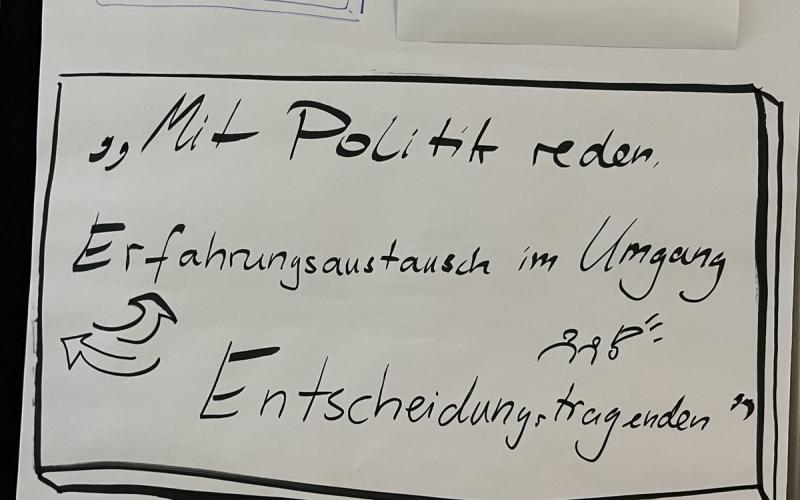 „Mit Politik reden.
Erfahrungsaustausch im Umgang
Entscheidungstragenden"